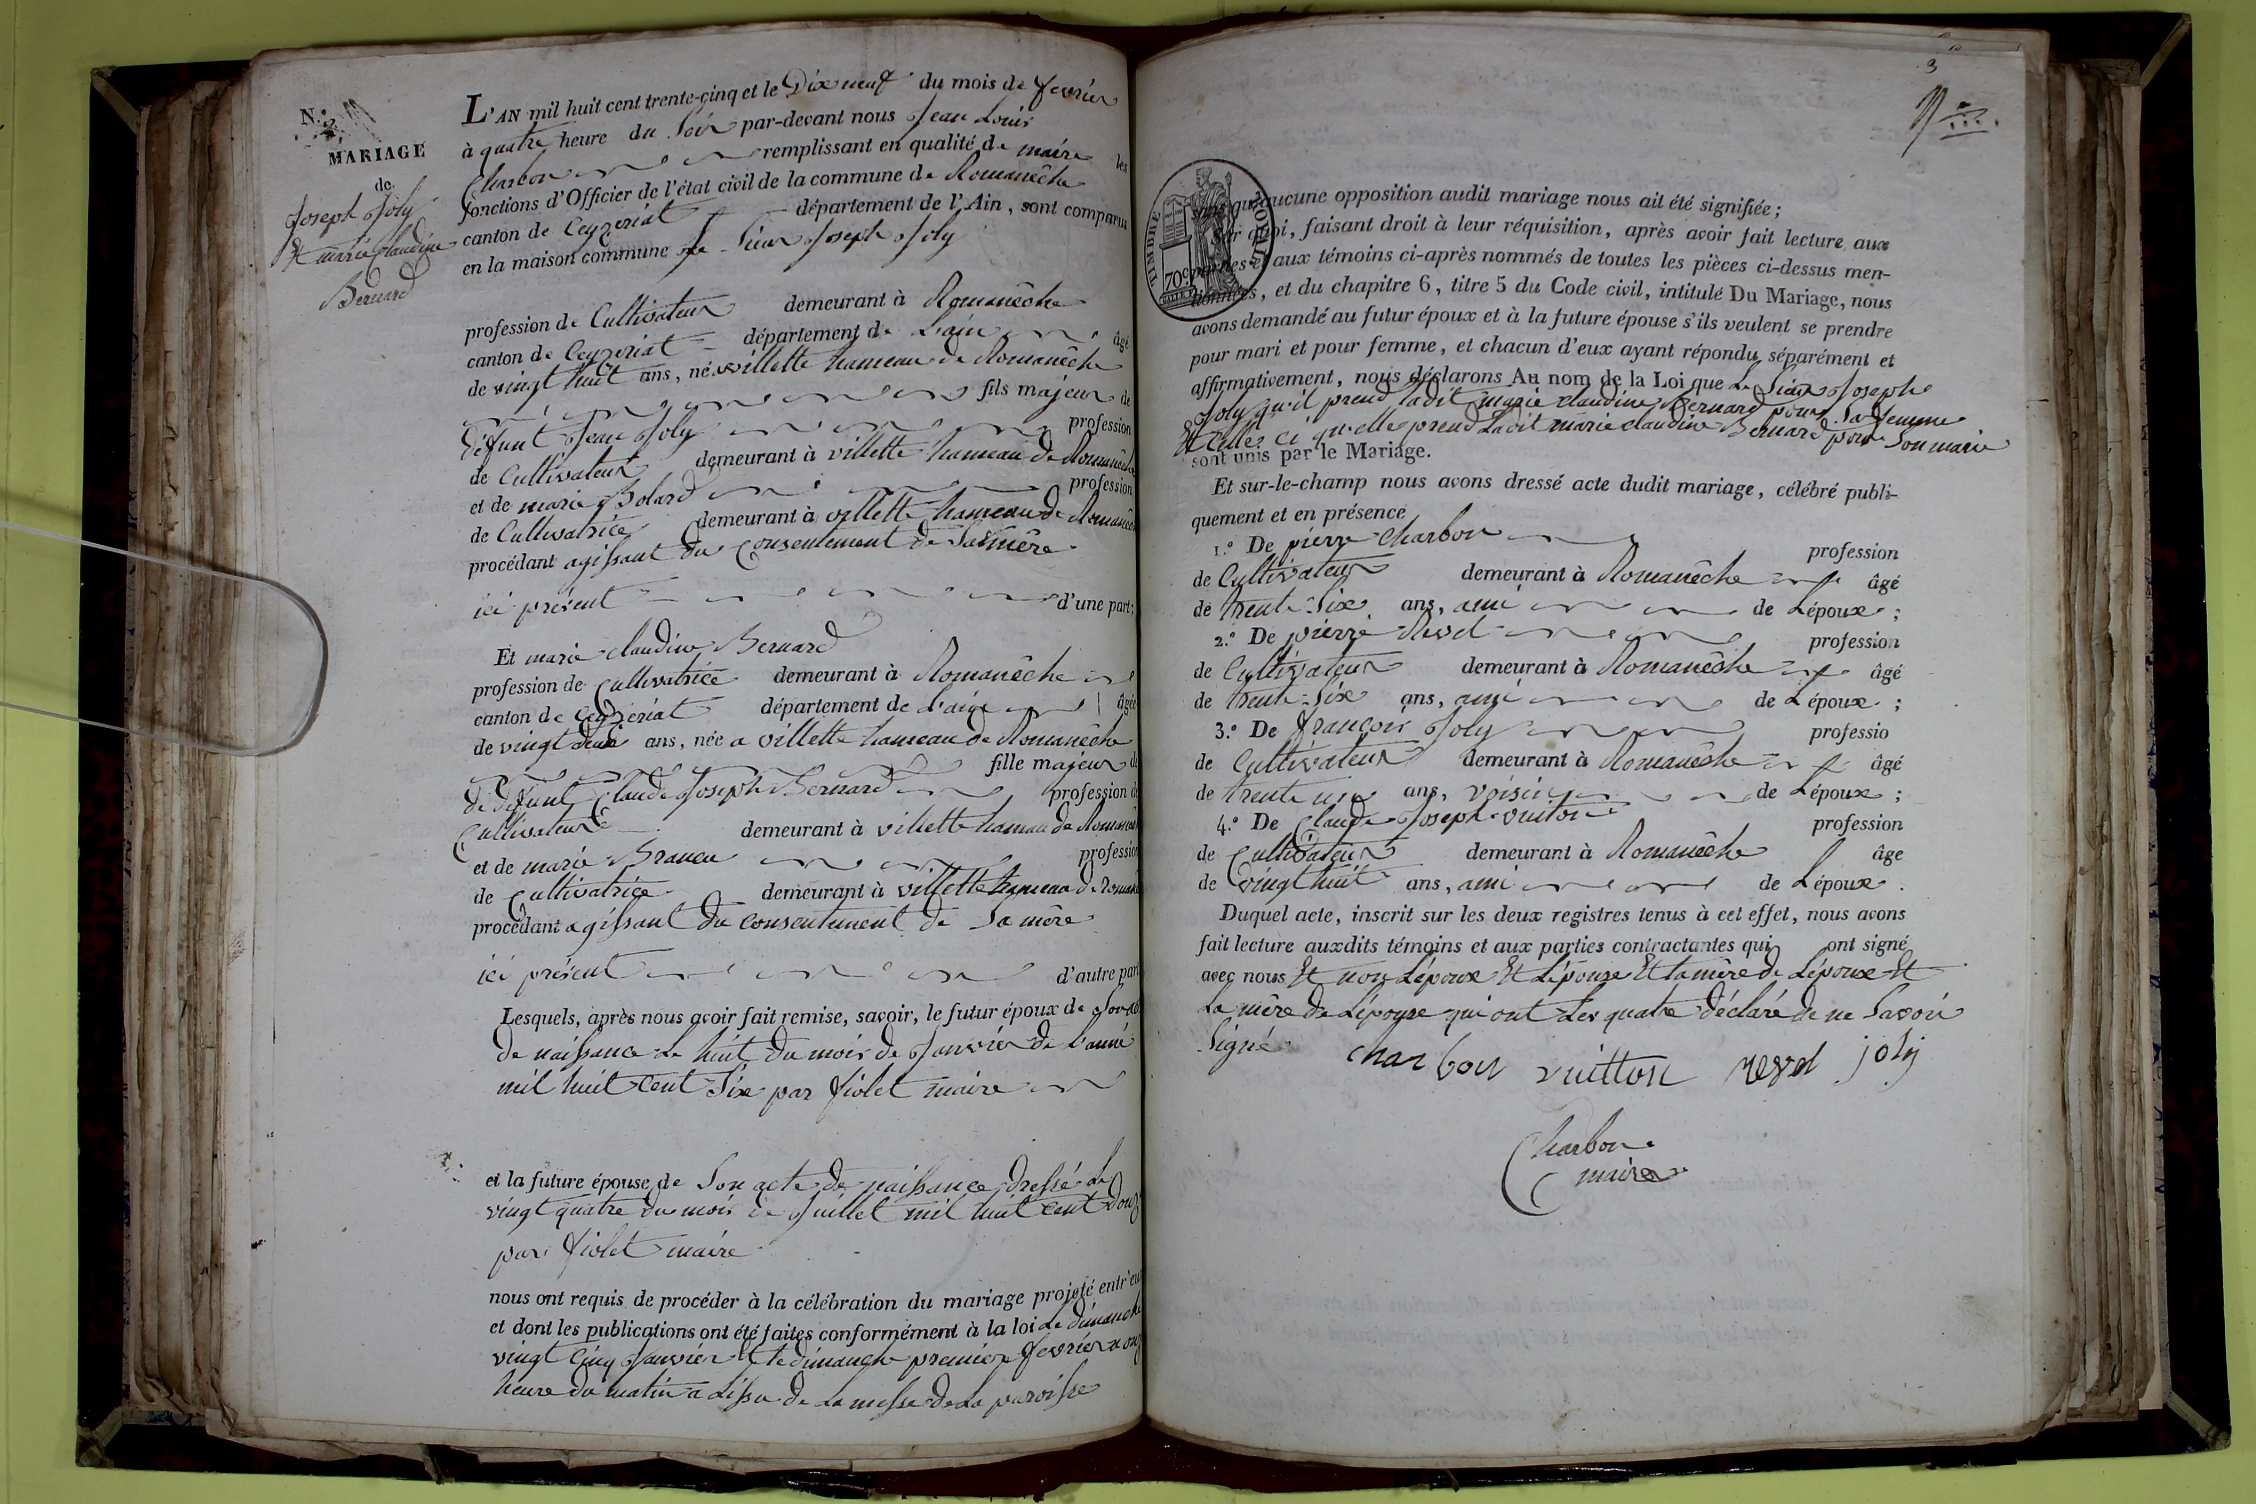 N.
MARIAGE
de
Joseph Joly
Et marie claudine
Bernard
L'AN mil huit cent trente-cinq et le Dix neuf du mois de fevrier
à quatre heure du Soir par-devant nous Jean Louis
Charbon remplissant en qualité de maire les
fonctions d'Officier de l'état civil de la commune de Romanêche
canton de Ceyzeriat département de l'Ain, sont comparus
en la maison commune Le Sieur Joseph Joly
profession de Cultivateur demeurant à Romanêche
canton de Ceyzeriat département de L'ain âgé
de vingt huit ans, né a villette hameau de Romanêche
fils majeur de
défunt Jean Joly profession
de Cultivateur demeurant à villette hameau de Romanêche
et de marie Bolard profession
de Cultivatrice demeurant à villette hameau de Romanêche
procédant agissant du Consentement de Sa mêre
ici présent d'une part;
Et marie claudine Bernard
profession de Cultivatrice demeurant à Romanêche
canton de Ceyzeriat département de L'ain âgée
de vingt deux ans, née a villette hameau de Romanêche
fille majeur de
de défunt Claude Joseph Bernard profession de
Cultivateur demeurant à villette hameau de Romanêche
et de marie Brancu profession
de Cultivatrice demeurant à villette hameau de Romanê
procédant agissant du consentement de Sa mêre
ici présent d'autre part
Lesquels, après nous avoir fait remise, savoir, le futur époux de Son acte
de naissance Le huit du mois de Janvier de L'anné
mil huit cent Six par fiolet maire
et la future épouse de Son acte de naissance dressé Le
vingt quatre du mois de Juillet mil huit cent douz
par fiolet maire
nous ont requis de procéder à la célébration du mariage projeté entr'eux
et dont les publications ont été faites conformément à la loi Le dimanche
vingt Cinq Janvier Et le dimanche premier fevrier a onz
heure du matin a Lissu de La messe de La paroisse
3
TIMBRE ROYAL
70c
sans qu'aucune opposition audit mariage nous ait été signifiée;
Sur quoi, faisant droit à leur réquisition, après avoir fait lecture aux
parties et aux témoins ci-après nommés de toutes les pièces ci-dessus men-
tionnées, et du chapitre 6, titre 5 du Code civil, intitulé Du Mariage, nous
avons demandé au futur époux et à la future épouse s'ils veulent se prendre
pour mari et pour femme, et chacun d'eux ayant répondu séparément et
affirmativement, nous déclarons Au nom de la Loi que Le Sieur Joseph
Joly qu'il prend Ladit marie claudine Bernard pour Sa femme
Et Celle ci qu'elle prend Ladit marie claudine Bernard pour Son marie
sont unis par le Mariage.
Et sur-le-champ nous avons dressé acte dudit mariage, célébré publi-
quement et en présence
1.º De pierre Charbon profession
de Cultivateur demeurant à Romanêche âgé
de trente Six ans, ami de Lépoux;
2.º De pierre Revel profession
de Cultivateur demeurant à Romanêche âgé
de trente Six ans, ami de Lépoux;
3.º De françois Joly professio
de Cultivateur demeurant à Romanêche âgé
de trente un ans, voisin de Lépoux;
4.º De Claude Joseph vuiton profession
de Cultivateur demeurant à Romanêche âge
de vingt huit ans, ami de Lépoux.
Duquel acte, inscrit sur les deux registres tenus à cet effet, nous avons
fait lecture auxdits témoins et aux parties contractantes qui ont signé
avec nous Et non Lépoux Et Lépouse Et la mêre de Lépoux Et
La mêre de Lépouse qui ont Les quatre déclaré de ne Savoir
Signé charbon vuitton revel joly
Charbon
maire